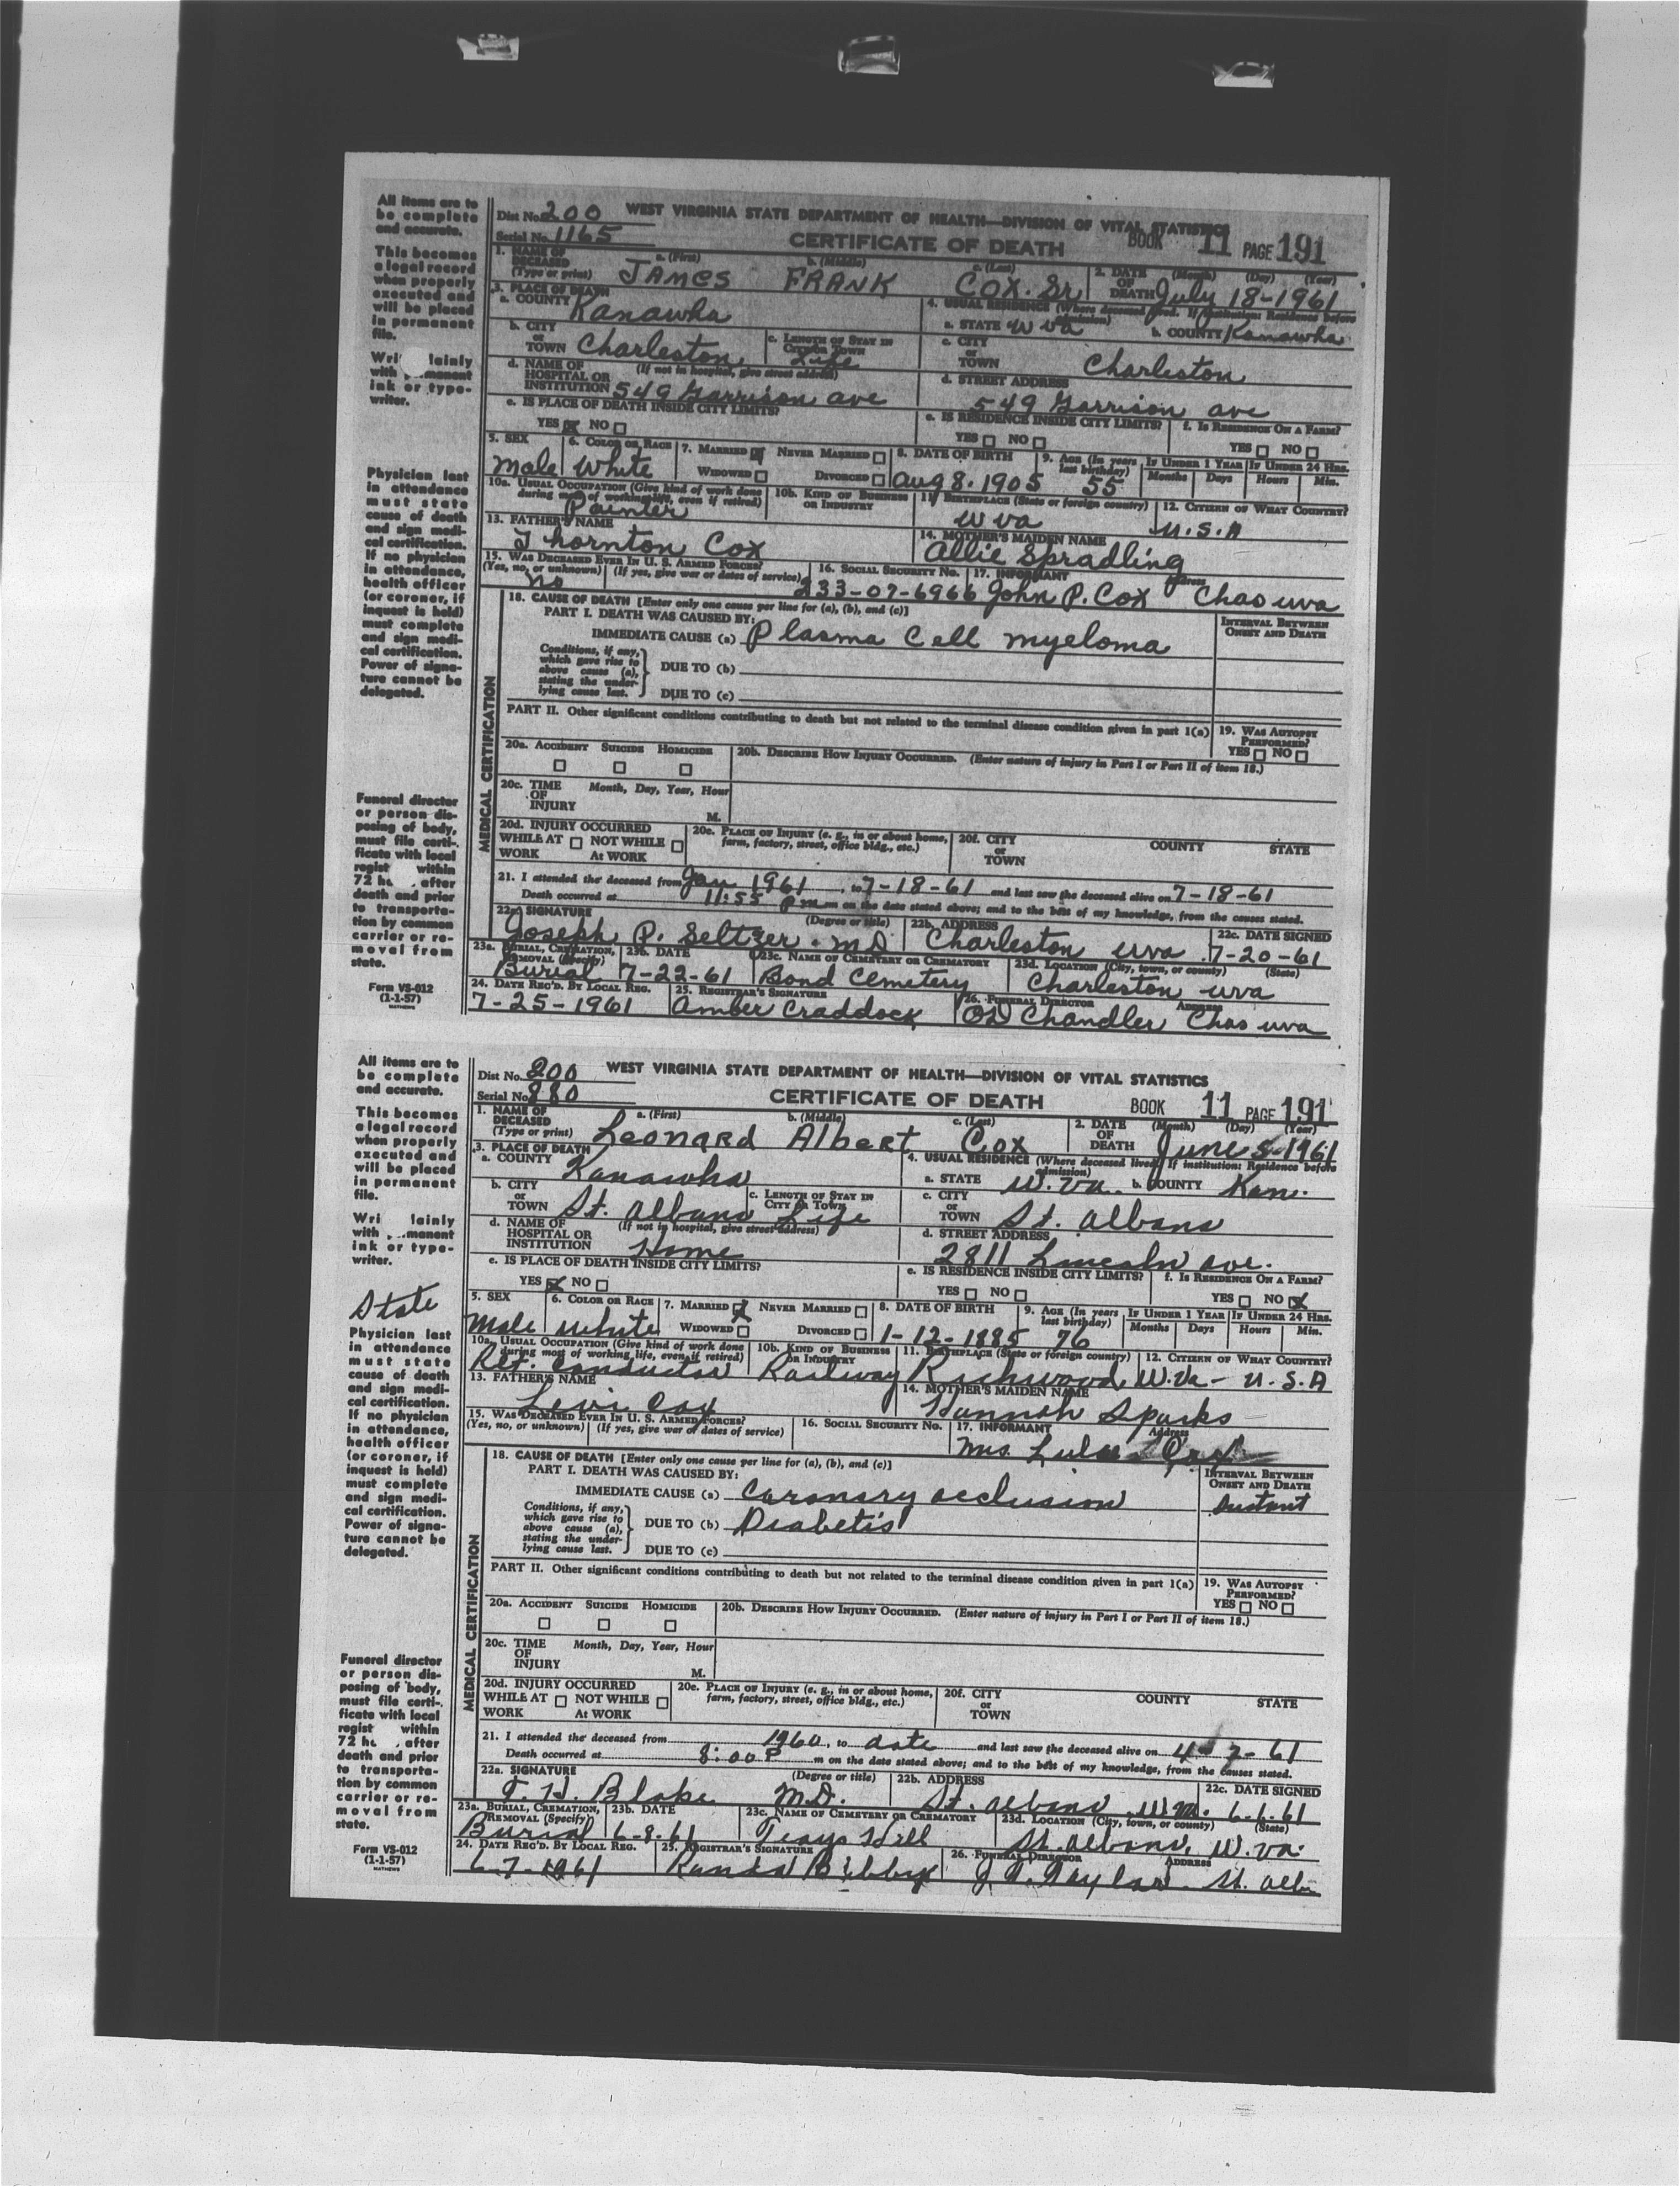 All items are to
be complete
and accurate.
This becomes
a legal record
when properly
executed and
will be placed
in permanent
file.
Wri lainly
with manent
ink or type-
writer.
Physician last
in attendance
must state
cause of death
and sign medi-
cal certification.
If no physician
in attendance,
health officer
(or coroner, if
inquest is held)
must complete
and sign medi-
cal certification.
Power of signa-
ture cannot be
delegated.
Funeral director
or person dis-
posing of body,
must file certi-
ficate with local
regist within
72 ho , after
death and prior
to transporta-
tion by common
carrier or re-
moval from
state.
Form VS-012
(1-1-57)
MATHEWS
Dist No. 200 WEST VIRGINIA STATE DEPARTMENT OF HEALTH—DIVISION OF VITAL STATISTICS
Serial No. 1165 CERTIFICATE OF DEATH BOOK 11 PAGE 191
1. NAME OF DECEASED (Type or print) a. (First) b. (Middle) c. (Last) 2. DATE OF DEATH (Month) (Day) (Year)
JAMES FRANK COX. Sr July 18-1961
3. PLACE OF DEATH 4. USUAL RESIDENCE (Where deceased lived. If institution: Residence before admission)
a. COUNTY Kanawha a. STATE W va b. COUNTY Kanawha
b. CITY or TOWN Charleston c. LENGTH OF STAY IN City or Town Life c. CITY or TOWN Charleston
d. NAME OF HOSPITAL OR INSTITUTION (If not in hospital, give street address) 549 Garrison ave d. STREET ADDRESS 549 Garrison ave
e. IS PLACE OF DEATH INSIDE CITY LIMITS? e. IS RESIDENCE INSIDE CITY LIMITS? f. Is RESIDENCE ON A FARM?
YES NO YES NO YES NO
5. SEX 6. COLOR OR RACE 7. MARRIED NEVER MARRIED 8. DATE OF BIRTH 9. AGE (In years last birthday) IF UNDER 1 YEAR IF UNDER 24 HRS.
Male White WIDOWED DIVORCED Aug 8. 1905 55 Months Days Hours Min.
10a. USUAL OCCUPATION (Give kind of work done during most of working life, even if retired) 10b. KIND OF BUSINESS OR INDUSTRY 11. BIRTHPLACE (State or foreign country) 12. CITIZEN OF WHAT COUNTRY?
Painter W va U.S.A
13. FATHER'S NAME 14. MOTHER'S MAIDEN NAME
Thornton Cox Allie Spradling
15. WAS DECEASED EVER IN U. S. ARMED FORCES? (Yes, no, or unknown) (If yes, give war or dates of service) 16. SOCIAL SECURITY NO. 17. INFORMANT Address
No 233-07-6966 John P. Cox Chas wva
18. CAUSE OF DEATH [Enter only one cause per line for (a), (b), and (c)] INTERVAL BETWEEN ONSET AND DEATH
PART I. DEATH WAS CAUSED BY:
IMMEDIATE CAUSE (a) Plasma Cell myeloma
Conditions, if any, which gave rise to above cause (a), stating the under-lying cause last. DUE TO (b)
DUE TO (c)
PART II. Other significant conditions contributing to death but not related to the terminal disease condition given in part 1(a) 19. WAS AUTOPSY PERFORMED? YES NO
20a. ACCIDENT SUICIDE HOMICIDE 20b. DESCRIBE HOW INJURY OCCURRED. (Enter nature of injury in Part I or Part II of item 18.)
20c. TIME OF INJURY Month, Day, Year, Hour M.
20d. INJURY OCCURRED WHILE AT WORK NOT WHILE AT WORK 20e. PLACE OF INJURY (e. g., in or about home, farm, factory, street, office bldg., etc.) 20f. CITY or TOWN COUNTY STATE
MEDICAL CERTIFICATION
21. I attended the deceased from Jan 1961, to 7-18-61 and last saw the deceased alive on 7-18-61
Death occurred at 11:55 P m on the date stated above; and to the best of my knowledge, from the causes stated.
22a. SIGNATURE (Degree or title) 22b. ADDRESS 22c. DATE SIGNED
Joseph P. Seltzer. M.D Charleston wva 7-20-61
23a. BURIAL, CREMATION, REMOVAL (Specify) 23b. DATE 23c. NAME OF CEMETERY OR CREMATORY 23d. LOCATION (City, town, or county) (State)
Burial 7-22-61 Bond Cemetery Charleston wva
24. DATE REC'D. BY LOCAL REG. 25. REGISTRAR'S SIGNATURE 26. FUNERAL DIRECTOR ADDRESS
7-25-1961 Amber Craddock Chandler Chas wva
All items are to
be complete
and accurate.
This becomes
a legal record
when properly
executed and
will be placed
in permanent
file.
Wri lainly
with manent
ink or type-
writer.
State
Physician last
in attendance
must state
cause of death
and sign medi-
cal certification.
If no physician
in attendance,
health officer
(or coroner, if
inquest is held)
must complete
and sign medi-
cal certification.
Power of signa-
ture cannot be
delegated.
Funeral director
or person dis-
posing of body,
must file certi-
ficate with local
regist within
72 ho , after
death and prior
to transporta-
tion by common
carrier or re-
moval from
state.
Form VS-012
(1-1-57)
MATHEWS
Dist No. 200 WEST VIRGINIA STATE DEPARTMENT OF HEALTH—DIVISION OF VITAL STATISTICS
Serial No. 880 CERTIFICATE OF DEATH BOOK 11 PAGE 191
1. NAME OF DECEASED (Type or print) a. (First) b. (Middle) c. (Last) 2. DATE OF DEATH (Month) (Day) (Year)
Leonard Albert Cox June 5-1961
3. PLACE OF DEATH 4. USUAL RESIDENCE (Where deceased lived. If institution: Residence before admission)
a. COUNTY Kanawha a. STATE W. Va. b. COUNTY Kan.
b. CITY or TOWN St. Albans c. LENGTH OF STAY IN City or Town Life c. CITY or TOWN St. Albans
d. NAME OF HOSPITAL OR INSTITUTION (If not in hospital, give street address) Home d. STREET ADDRESS 2811 Lincoln ave.
e. IS PLACE OF DEATH INSIDE CITY LIMITS? e. IS RESIDENCE INSIDE CITY LIMITS? f. Is RESIDENCE ON A FARM?
YES NO YES NO YES NO
5. SEX 6. COLOR OR RACE 7. MARRIED NEVER MARRIED 8. DATE OF BIRTH 9. AGE (In years last birthday) IF UNDER 1 YEAR IF UNDER 24 HRS.
Male White WIDOWED DIVORCED 1-12-1885 76 Months Days Hours Min.
10a. USUAL OCCUPATION (Give kind of work done during most of working life, even if retired) 10b. KIND OF BUSINESS OR INDUSTRY 11. BIRTHPLACE (State or foreign country) 12. CITIZEN OF WHAT COUNTRY?
Ret. Conductor Railway Richwood, W.Va- U.S.A
13. FATHER'S NAME 14. MOTHER'S MAIDEN NAME
Levi Cox Hannah Sparks
15. WAS DECEASED EVER IN U. S. ARMED FORCES? (Yes, no, or unknown) (If yes, give war or dates of service) 16. SOCIAL SECURITY NO. 17. INFORMANT Address
Mrs. Lula Cox
18. CAUSE OF DEATH [Enter only one cause per line for (a), (b), and (c)] INTERVAL BETWEEN ONSET AND DEATH
PART I. DEATH WAS CAUSED BY:
IMMEDIATE CAUSE (a) Coronary occlusion Instant
Conditions, if any, which gave rise to above cause (a), stating the under-lying cause last. DUE TO (b) Diabetis
DUE TO (c)
PART II. Other significant conditions contributing to death but not related to the terminal disease condition given in part 1(a) 19. WAS AUTOPSY PERFORMED? YES NO
20a. ACCIDENT SUICIDE HOMICIDE 20b. DESCRIBE HOW INJURY OCCURRED. (Enter nature of injury in Part I or Part II of item 18.)
20c. TIME OF INJURY Month, Day, Year, Hour M.
20d. INJURY OCCURRED WHILE AT WORK NOT WHILE AT WORK 20e. PLACE OF INJURY (e. g., in or about home, farm, factory, street, office bldg., etc.) 20f. CITY or TOWN COUNTY STATE
MEDICAL CERTIFICATION
21. I attended the deceased from 1960, to date and last saw the deceased alive on 4-7-61
Death occurred at 8:00 P m on the date stated above; and to the best of my knowledge, from the causes stated.
22a. SIGNATURE (Degree or title) 22b. ADDRESS 22c. DATE SIGNED
T. H. Blake M.D. St. Albans W.Va.
23a. BURIAL, CREMATION, REMOVAL (Specify) 23b. DATE 23c. NAME OF CEMETERY OR CREMATORY 23d. LOCATION (City, town, or county) (State)
Burial 6-8-61 Teays Hill St. Albans, W.Va.
24. DATE REC'D. BY LOCAL REG. 25. REGISTRAR'S SIGNATURE 26. FUNERAL DIRECTOR ADDRESS
6-7-1961 Bibby St. Alb